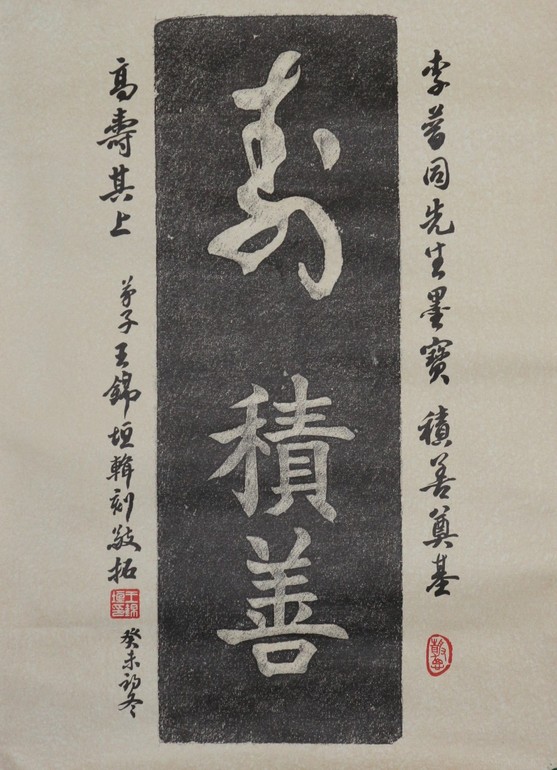 李普同先生墨寶 積善奠基
寿
積善
高壽其上
弟子王錦垣輯刻敬拓
王錦垣印
癸未初冬